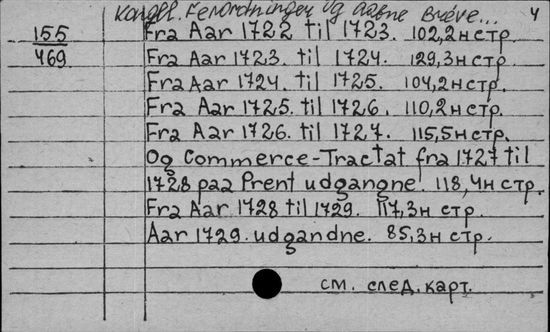 Kongel. Forordninger og aabne Breve... 4
155 Fra Aar 1722 til 1723. 102,2н стр.
469 Fra Aar 1723. til 1724. 129,3н стр.
Fra Aar 1724. til 1725. 104,2н стр.
Fra Aar 1725. til 1726. 110,2н стр.
Fra Aar 1726. til 1727. 115,5н стр.
Og Commerce-Tractat fra 1727 til
1728 paa Prent udgangne. 118,4н стр.
Fra Aar 1728 til 1729. 117,3н стр.
Aar 1729. udgandne. 85,3н стр.
см. след. карт.